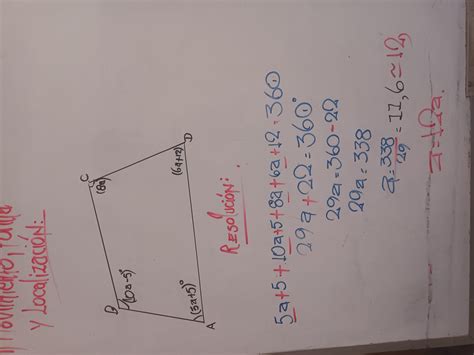 Movimiento,
y Localización:
B
C
(10a-5)
(8a)
(6a+12)
D
(5a+5)°
A
RESOLUCIÓN:
5a+5+10a+5+8a+6a+12=360
29a+22=360°
29a=360-22
29a=338
a=338/29=11,6≃12,
a=12a.